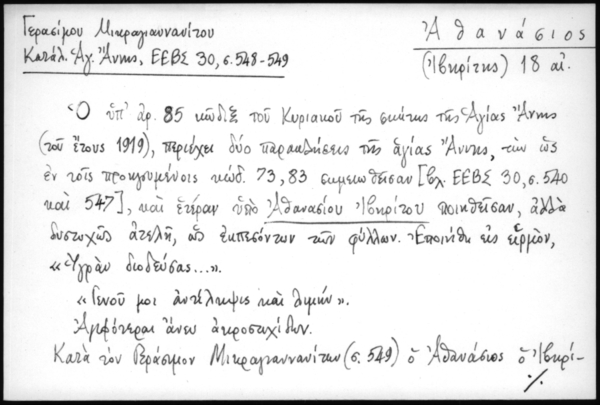 Γερασίμου Μικραγιαννανίτου
Κατάλ. Ἁγ. Ἄννης, ΕΕΒΣ 30, σ. 548-549
Ἀθανάσιος
(Ἰβηρίτης) 18 αἰ.
Ὁ ὑπ' ἀρ. 85 κῶδιξ τοῦ Κυριακοῦ τῆς σκήτης τῆς Ἁγίας Ἄννης
(τοῦ ἔτους 1919), περιέχει δύο παρακλήσεις τῆς ἁγίας Ἄννης, τὴν ὡς
ἐν τοῖς προηγουμένοις κώδ. 73, 83 σημειωθεῖσαν [βλ. ΕΕΒΣ 30, σ. 540
καὶ 547], καὶ ἑτέραν ὑπὸ Ἀθανασίου Ἰβηρίτου ποιηθεῖσαν, ἀλλὰ
δυστυχῶς ἀτελῆ, ὡς ἐκπεσόντων τῶν φύλλων. Ἐποιήθη εἰς εἱρμὸν,
«Ὑγρὰν διοδεύσας...».
«Γενοῦ μοι ἀντέληψις καὶ λιμήν».
Ἀμφότεραι ἄνευ ἀκροστιχίδων.
Κατὰ τὸν Γεράσιμον Μικραγιαννανίτην (σ. 549) ὁ Ἀθανάσιος ὁ Ἰβηρί-
./.